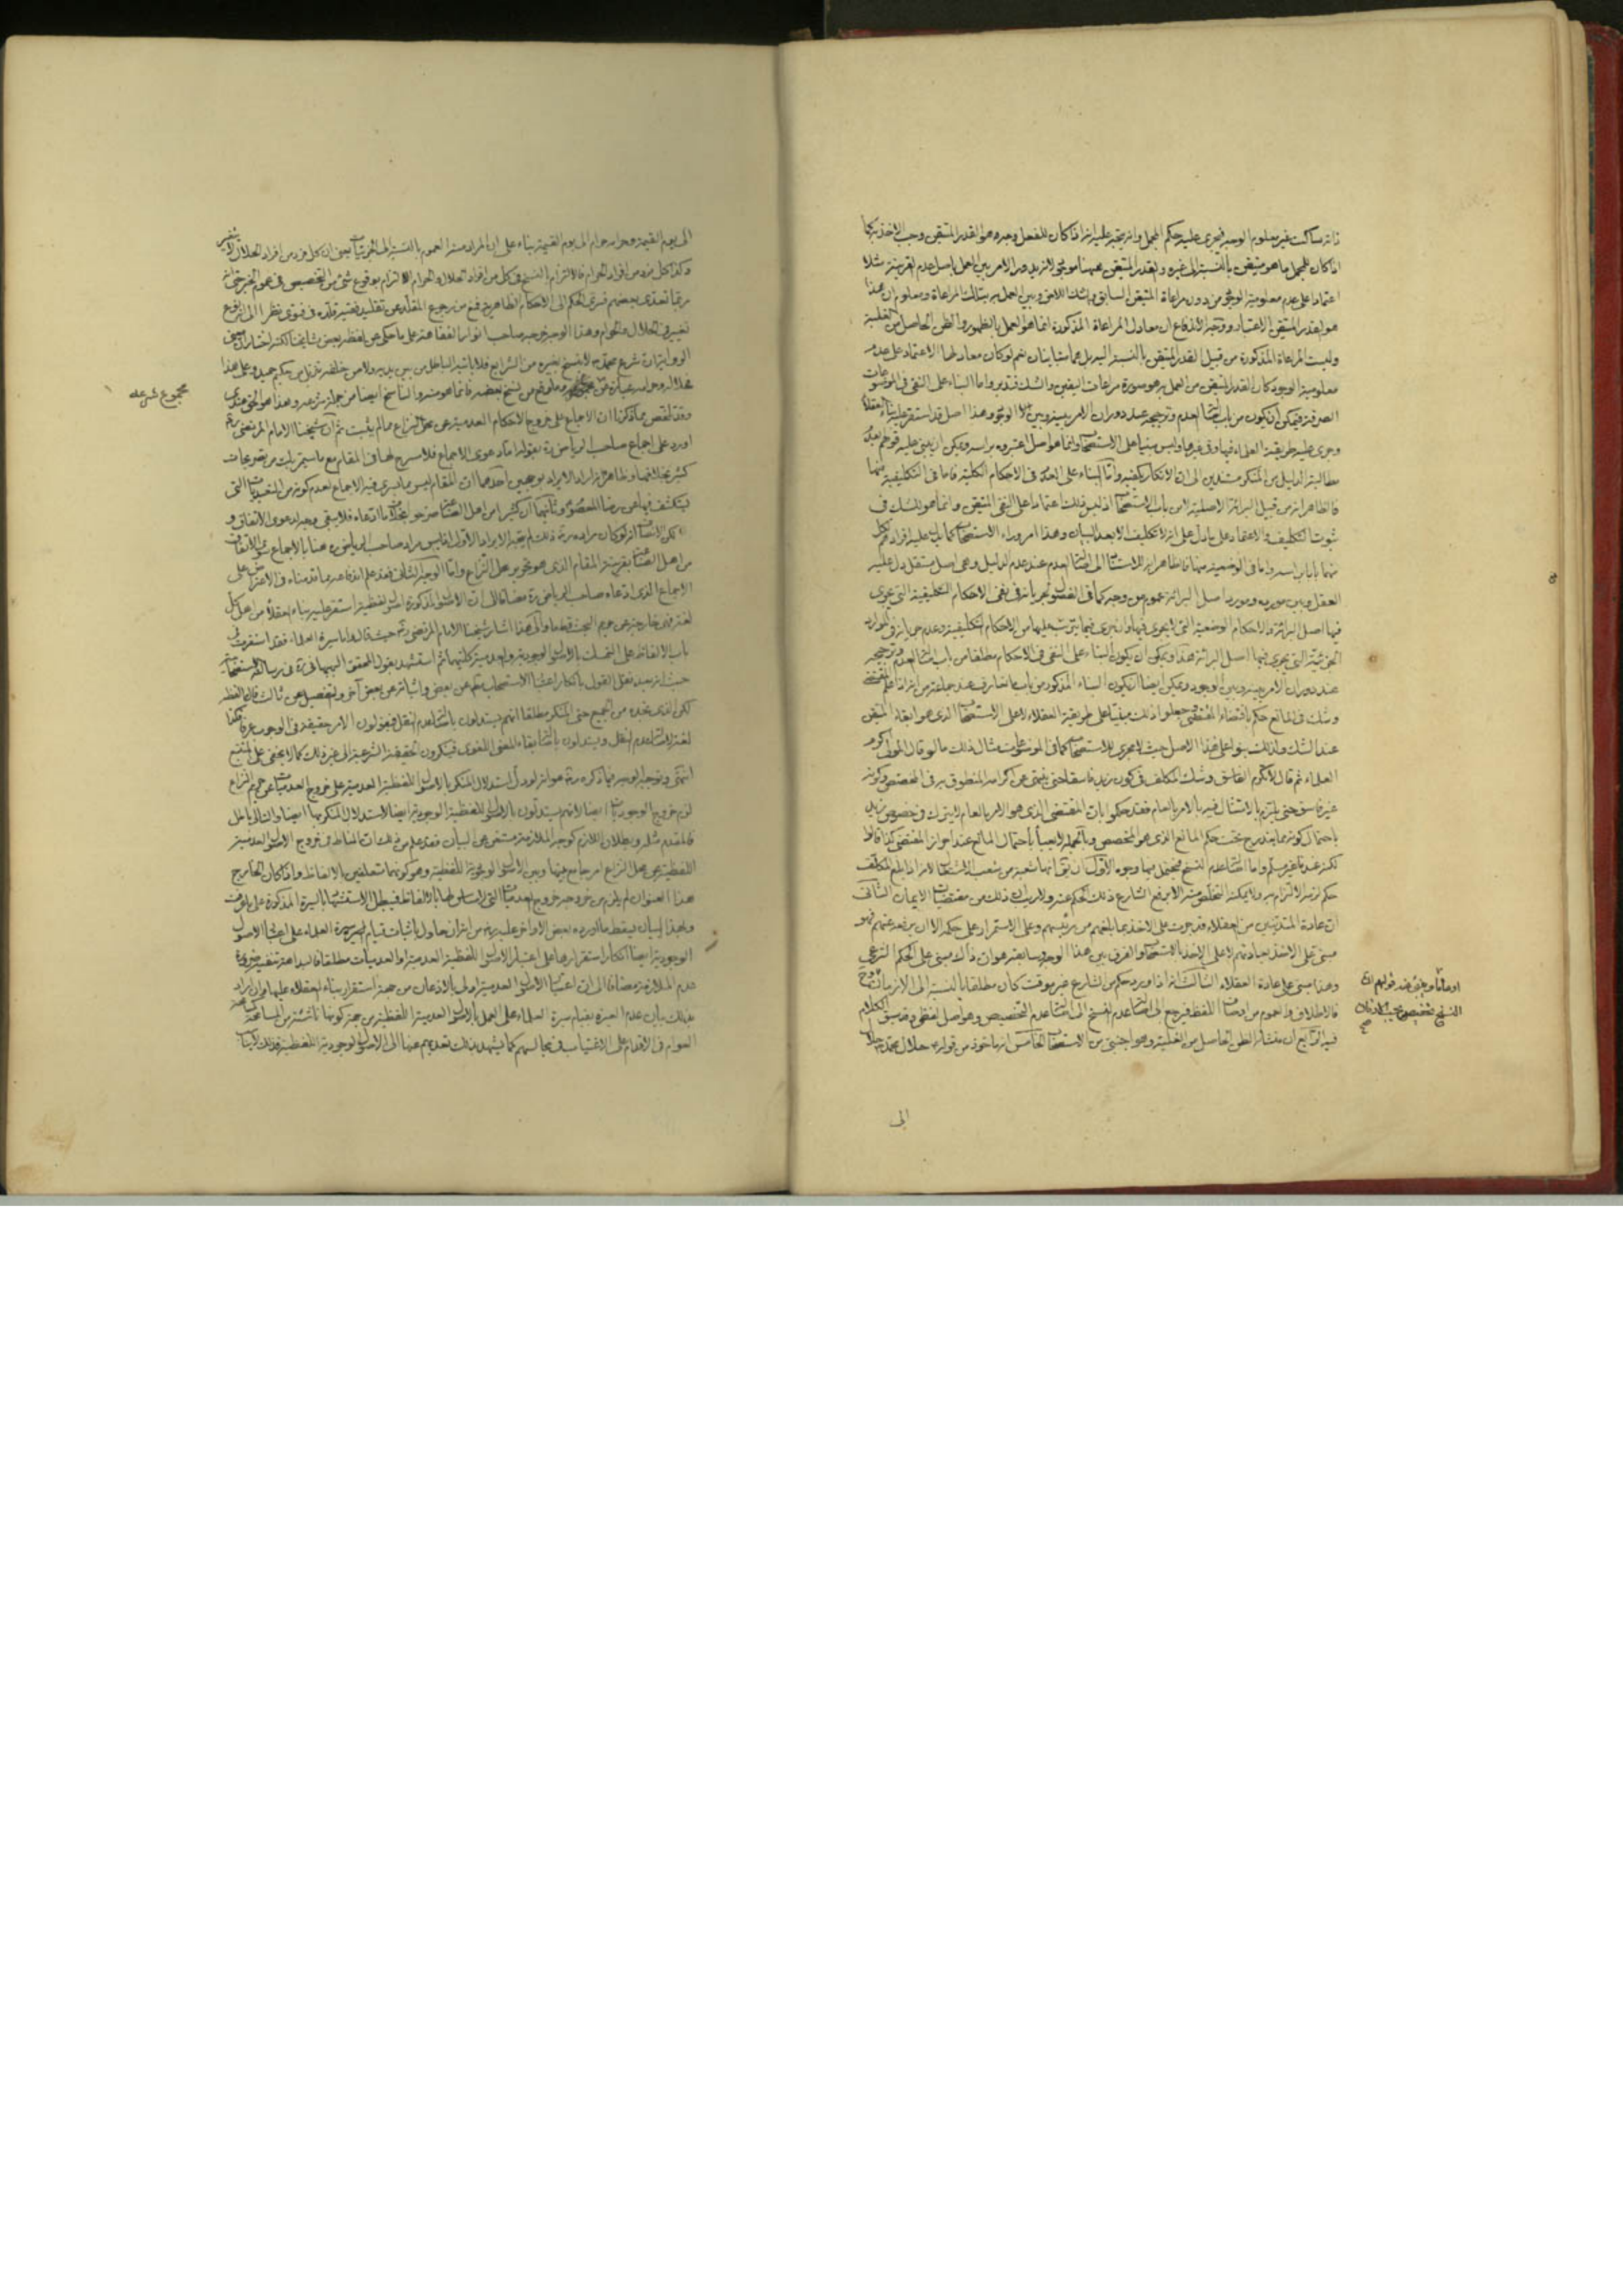 ذاته ساكت غير معلوم الوجه فيجرى عليه حكم المجمل وانه يتجه عليه انه اذا كان للفعل وجه هو القدر المتيقن وجب الاخذ به كما
اذا كان للمجمل ما هو متيقن بالنسبة الى غيره والقدر المتيقن هيهنا موجود لانه يدور الامر بين العمل باصل عدم القرينة مثلا
اعتمادا على عدم معلومية الوجود من دون مراعاة المتيقن السابق والشك اللاحق وبين العمل به بتلك المراعاة ومعلوم ان هذا
هو القدر المتيقن الاعتبار ووجه الاندفاع ان معادل المراعاة المذكورة انما هو العمل بالظهور والظن الحاصل من الغلبة
وليست المراعاة المذكورة من قبيل القدر المتيقن بالنسبة اليه بل هما متباينان نعم لو كان معادلها الاعتماد على عدم
معلومية الوجود كان القدر المتيقن من العمل به هو صورة مراعات اليقين والشك فتدبر واما البناء على النفى فى الموضوعات
الصرفة فيمكن ان يكون من باب اصالة العدم وترجيحه عند دوران الامر بينه وبين الوجود وهذا اصل قد استقر عليه بناء العقلاء
وجرى عليه طريقة العلماء فيها وفى غيرها وليس مبنيا على الاستصحاب وانما هو اصل اعتبروه براسه ويمكن ان يبنى عليه قولهم بعدم
مطالبة الدليل من المنكر مستندين الى ان الانكار يكفيه واما البناء على العدم فى الاحكام الكلية فاما فى التكليفية منها
فالظاهر انه من قبيل البرائة الاصلية لا من باب الاستصحاب اذ ليس ذلك اعتمادا على النفى المتيقن وانما هو للشك فى
ثبوت التكليف والاعتماد على ما دل على انه لا تكليف الا بعد البيان وهذا امر وراء الاستصحاب كما يدل عليه افرادهم لكل
منهما بابا براسه واما فى الوضعية منها فالظاهر انه للاستناد الى اصالة العدم عند عدم الدليل وهى اصل مستقل دل عليه
العقل وبين مورده ومورد اصل البرائة عموم من وجه كما فى الفصول لجريانه فى نفى الاحكام التكليفية التى يجرى
فيها اصل البرائة والاحكام الوضعية التى لا يجرى فيها وان جرى فيما يترتب عليها من الاحكام التكليفية وعدم جريانه فى الموارد
الجزئية التى يجرى فيها اصل البرائة هذا ويمكن ان يكون البناء على النفى فى الاحكام مطلقا من باب اصالة العدم وترجيحه
عند دوران الامر بينه وبين الوجود ويمكن ايضا ان يكون البناء المذكور من باب ما تعارف عند جماعة من انه اذا علم المقتضى
وشك فى المانع حكم باقتضاء المقتضى وجعلوا ذلك مبنيا على طريقة العقلاء لا على الاستصحاب الذى هو ابقاء المتيقن
عند الشك ولذلك بنوا على هذا الاصل حيث لا مجرى للاستصحاب كما فى الموضوعات مثال ذلك ما لو قال المولى اكرم
العلماء ثم قال لا تكرم الفاسق وشك المكلف فى كون زيد فاسقا حتى ينتهى عن اكرامه المنطوق به فى المخصص وكونه
غير فاسق حتى يلتزم بالامتثال فيه بالامر بالعام فقد حكموا بان المقتضى الذى هو الامر بالعام لا يترك فى خصوص زيد
باحتمال كونه مما يندرج تحت حكم المانع الذى هو المخصص وبالجملة لا يعبأ باحتمال المانع عند احراز المقتضى كذا قالوا
لكنه عندنا غير مسلم واما اصالة عدم النسخ فيحتمل فيها وجوه الاول ان يقال انها شعبة من شعب الاستصحاب لانه اذا بلغ المكلف
حكم لزمه الالتزام به ولا يمكنه التخلص منه الا برفع الشارع ذلك الحكم عنه ولا ريب ان ذلك من مقتضيات الايمان الثانى
ان عادة المتدينين من العقلاء قد جرت على الاخذ بما بلغهم من رئيسهم وعلى الاستمرار على حكمه الا ان يرفعه عنهم فهو
مبنى على الاخذ بعادتهم لا على الاخذ بالاستصحاب والفرق بين هذا الوجه وسابقه هو ان ذاك مبنى على الحكم الشرعى
وهذا مبنى على عادة العقلاء الثالث انه اذا ورد حكم من الشارع غير موقت كان مطلقا بالنسبة الى الازمان وح
فالاطلاق والعموم من اوصاف اللفظ فيرجع الى اصالة عدم النسخ الى اصالة عدم التخصيص وهو اصل لفظى وقد سبق الكلام
فيه الرابع ان منشأه الظن الحاصل من الغلبة وهو اجنبى من الاستصحاب الخامس انه ماخوذ من قوله ع حلال محمد ص حلال
الى
النسخ تخصيص بحسب الازمان
صح
الى يوم القيمة وحرامه حرام الى يوم القيمة بناء على ان المراد منه العموم بالنسبة الى الجزئيات يعنى ان كل فرد من افراد الحلال لا يتغير
وكذا كل فرد من افراد الحرام فالالتزام بالنسخ فى كل من افراد الحلال والحرام التزام بوقوع شئ من التخصيص فى عموم الخبر حتى انه
ربما تعدى بعضهم فسرى الحكم الى الاحكام الظاهرية فمنع من رجوع المقلد عن تقليد فقيه قلده فى فتوى نظرا الى انه نوع
تغيير فى الحلال والحرام وهذا الوجه خرجه صاحب انوار الفقاهة على ما حكى عن لفظه بعض مشايخنا لكنه اختار ان معنى
الرواية ارادة شرع محمد ص لا ينسخ بغيره من الشرايع فلا ياتيه الباطل من بين يديه ولا من خلفه تنزيل من حكيم حميد وعلى هذا
فحلاله وحرامه عبارة عن وما وقع من نسخ بعضه فانما هو منه والناسخ ايضا من جملة شرعه وهذا هو الحق عندى
مجموع شرعه
وقد تلخص مما ذكرنا ان الاجماع على خروج الاحكام العدمية عن محل النزاع مما لم يثبت ثم ان شيخنا الامام المرتضى ره
اورد على اجماع صاحب الرياض ره بقوله اما دعوى الاجماع فلا مسرح لها فى المقام مع ما سيمر بك من تصريحات
كثير بخلافها وظاهره انه اراد الايراد بوجهين احدهما ان المقام ليس مما يجرى فيه الاجماع لعدم كونه من التعبديات التى
يستكشف فيها عن رضا المعصوم وثانيهما ان كثيرا من اهل الفن صرحوا بخلاف ما ادعاه فلا يبقى وجه لدعوى الاتفاق و
لكن الانصاف انه لو كان مراده ره ذلك لم يتجه الايراد الاول اذ ليس مراد صاحب الرياض ره هنا بالاجماع سوى الاتفاق
من اهل الفن بقرينة المقام الذى هو تحرير محل النزاع واما الوجه الثانى فقد علم اندفاعه مما قدمناه فى الاعتراض على
الاجماع الذى ادعاه صاحب الرياض ره مضافا الى ان الاصول المذكورة اصول لفظية استقر عليه بناء العقلاء من اهل كل
لغة فهى خارجة عن حريم البحث قطعا والى هذا اشار شيخنا الامام المرتضى ره حيث قال واما سيرة العلماء فقد استقرت فى
باب الالفاظ على التمسك بالاصول الوجودية والعدمية كلتيهما ثم استشهد بقول المحقق البهبهانى ره فى رسالة الاستصحاب
حيث انه بعد نقل القول بانكار اعتبار الاستصحاب مطلقا عن بعض واثباته عن بعض آخر والتفصيل عن ثالث قال ما لفظه
لكن الذى نجد من الجميع حتى المنكر مطلقا انهم يستدلون باصالة عدم النقل فيقولون الامر حقيقة فى الوجوب عرفا فكذا
لغة لاصالة عدم النقل ويستدلون باصالة بقاء المعنى اللغوى فينكرون الحقيقة الشرعية الى غير ذلك كما لا يخفى على المتتبع
انتهى وتوجيه الوجه فيما ذكره ره هو انه لو دل استدلال المنكر بالاصول اللفظية العدمية على خروج العدميات عن حريم النزاع
لزم خروج الوجوديات ايضا لانهم يستدلون بالاصول اللفظية الوجودية ايضا لاستدلال المنكر بها ايضا والتالى باطل
فالمقدم مثله وبطلان اللازم كوجه الملازمة مستغن عن البيان فقد علم من ذلك ان المناط فى خروج الاصول العدمية
اللفظية عن محل النزاع امر جامع بينها وبين الاصول الوجودية اللفظية وهو كونهما متعلقين بالالفاظ واذا كان الخارج
هذا العنوان لم يلزم من خروجه خروج العدميات التى لا مساس لها بالالفاظ فيبطل الاستشهاد بالسيرة المذكورة على ما عرفت
وبهذا البيان يسقط ما اورده بعض الاواخر عليه ره من انه ان حاول باثبات قيام سيرة العلماء على اعتبار الاصول
الوجودية ايضا انكار استقرارها على اعتبار الاصول اللفظية العدمية او العدميات مطلقا فالبداهة تنفيه ضرورة
عدم الملازمة مضافا الى ان اعتبار الاصول العدمية اولى بالاذعان من جهة استقرار بناء العقلاء عليها وان اراد
بذلك بيان عدم العبرة بقيام سيرة العلماء على العمل بالاصول العدمية اللفظية من جهة كونها ناشئة من المسامحة
العوام فى الاقدام على الاغتياب فى مجالسهم كما يشهد بذلك تعديهم عنها الى الاصول الوجودية اللفظية فذلك